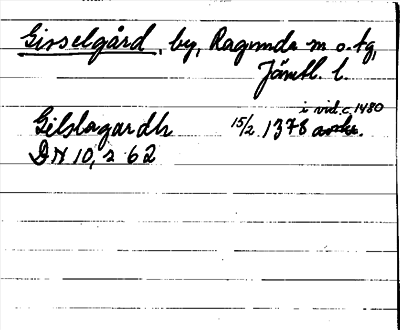 Gisselgård, by, Ragunda sn o. tg,
Jämtl. l.
i vid. c. 1480
Gilslagardh 15/2 1378 avskr.
DN 10, s 62